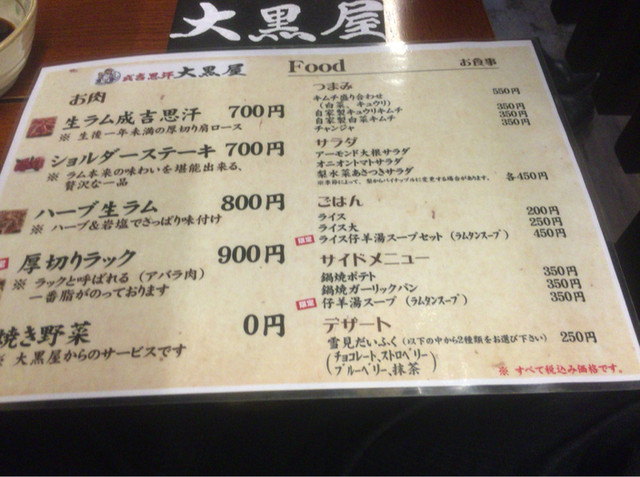 大黒屋
成吉思汗 大黒屋
Food
お食事
お肉
生ラム成吉思汗 700円
※ 生後一年未満の厚切り肩ロース
ショルダーステーキ 700円
※ ラム本来の味わいを堪能出来る、
贅沢な一品
ハーブ生ラム 800円
※ ハーブ&岩塩でさっぱり味付け
厚切りラック 900円
※ ラックと呼ばれる (アバラ肉)
一番脂がのっております
焼き野菜 0円
※ 大黒屋からのサービスです
つまみ
キムチ盛り合わせ 550円
(白菜、キュウリ)
自家製キュウリキムチ 350円
自家製白菜キムチ 350円
チャンジャ 350円
サラダ
アーモンド大根サラダ
オニオントマトサラダ
梨水菜あさつきサラダ 各450円
※季節によって、梨からパイナップルに変更する場合があります。
ごはん
ライス 200円
ライス大 250円
限定 ライス仔羊湯スープセット (ラムタンスープ) 450円
サイドメニュー
鍋焼ポテト 350円
鍋焼ガーリックパン 350円
限定 仔羊湯スープ (ラムタンスープ) 350円
デザート
雪見だいふく (以下の中から2種類をお選び下さい) 250円
(チョコレート、ストロベリー
ブルーベリー、抹茶)
※ すべて税込み価格です。